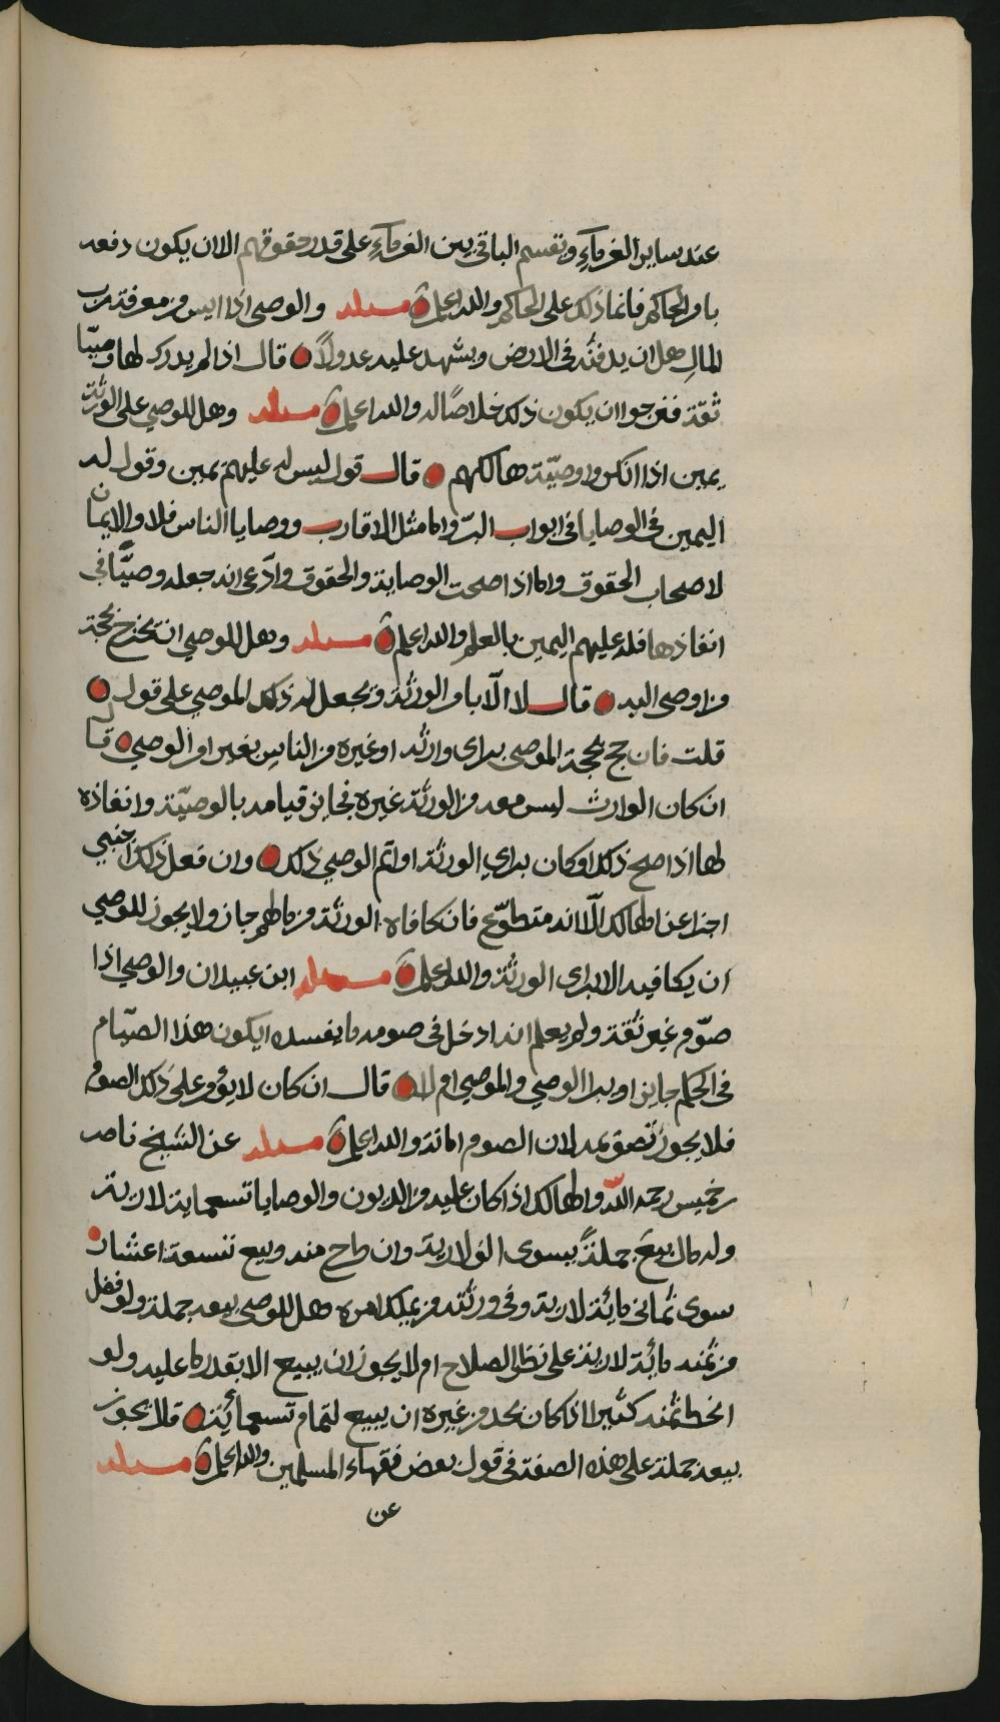 عند ساير الغرمآءِ ويقسم الباقي بين الغرمآءِ على قدر حقوقهم الا ان يكون دفعه
بامر الحاكم فانما ذلك على الحاكم والله اعلم مسئله والوصي اذا ايس من معرفة رب
المالِ هل له ان يدفنُه في الارض ويشهد عليه عدولاً قال اذا لم يدرك لها وصيّا
ثقة فنرجوا ان يكون ذلك خلاصًا له والله اعلم مسئله وهل للوصي على الورثة
يمين اذا انكروا وصيّة هالكهم قال قول ليس له عليهم يمين وقول له
اليمين في الوصايا في ابواب البرّ واما مثل الاقارب ووصايا الناس فلا والايمان
لاصحاب الحقوق واما اذا صحت الوصاية والحقوق وادّعى انه جعله وصيًّا في
انفاذها فله عليهم اليمين بالعلم والله اعلم مسئله وهل للوصي ان يخرج بحجة
من اوصى اليه قال لا الّا بامر الورثة ويجعل له ذلك الموصي على قول
قلت فان حج بحجة الموصي براى وارثه او غيره من الناسِ بغير امر الوصي قال
ان كان الوارث ليس معه من الورثة غيره فجايز قيامه بالوصيّة وانفاذه
لها اذا صح ذلك او كان براي الورثة او اتم الوصي ذلك وان فعل ذلك اجنبي
اجزا عن الهالك الّا انه متطوّع فان كافاه الورثة من مالهم جاز ولا يجوز للوصي
ان يكافيه الا براى الورثة والله اعلم مسئله ابن عبيدان والوصي اذا
صوّم غير ثقة ولم يعلم انه ادخل في صومه ما يفسده ايكون هذا الصيّام
في الحكم جايز او يبرا الوصي والموصي ام لا قال ان كان لا يؤمن على ذلك الصوم
فلا يجوز تصويمه لان الصوم امانة والله اعلم مسئله عن الشيخ ناصر
بن خميس رحمه اللّه والهالك اذا كان عليه من الديون والوصايا تسعماية لارية
وله مال يبيعَ جملةً يسوى الف لارية وان طرح منه وبيع تسعة اعشار
سوى ثماني مائة لارية وفي ورثته من يملك امره هل للوصي بيعه جملة ولو فضل
من ثمنه مائة لارية على نظر الصلاح ام لا يجوز ان يبيع الا بقدر ما عليه ولو
انحط ثمنه كثيرا اذا كان يحد من غيره ان يبيع لتمام تسعمائية قال لا يجوز
بيعه جملة على هذه الصفة في قول بعض فقهاء المسلمين والله اعلم مسئله
عن